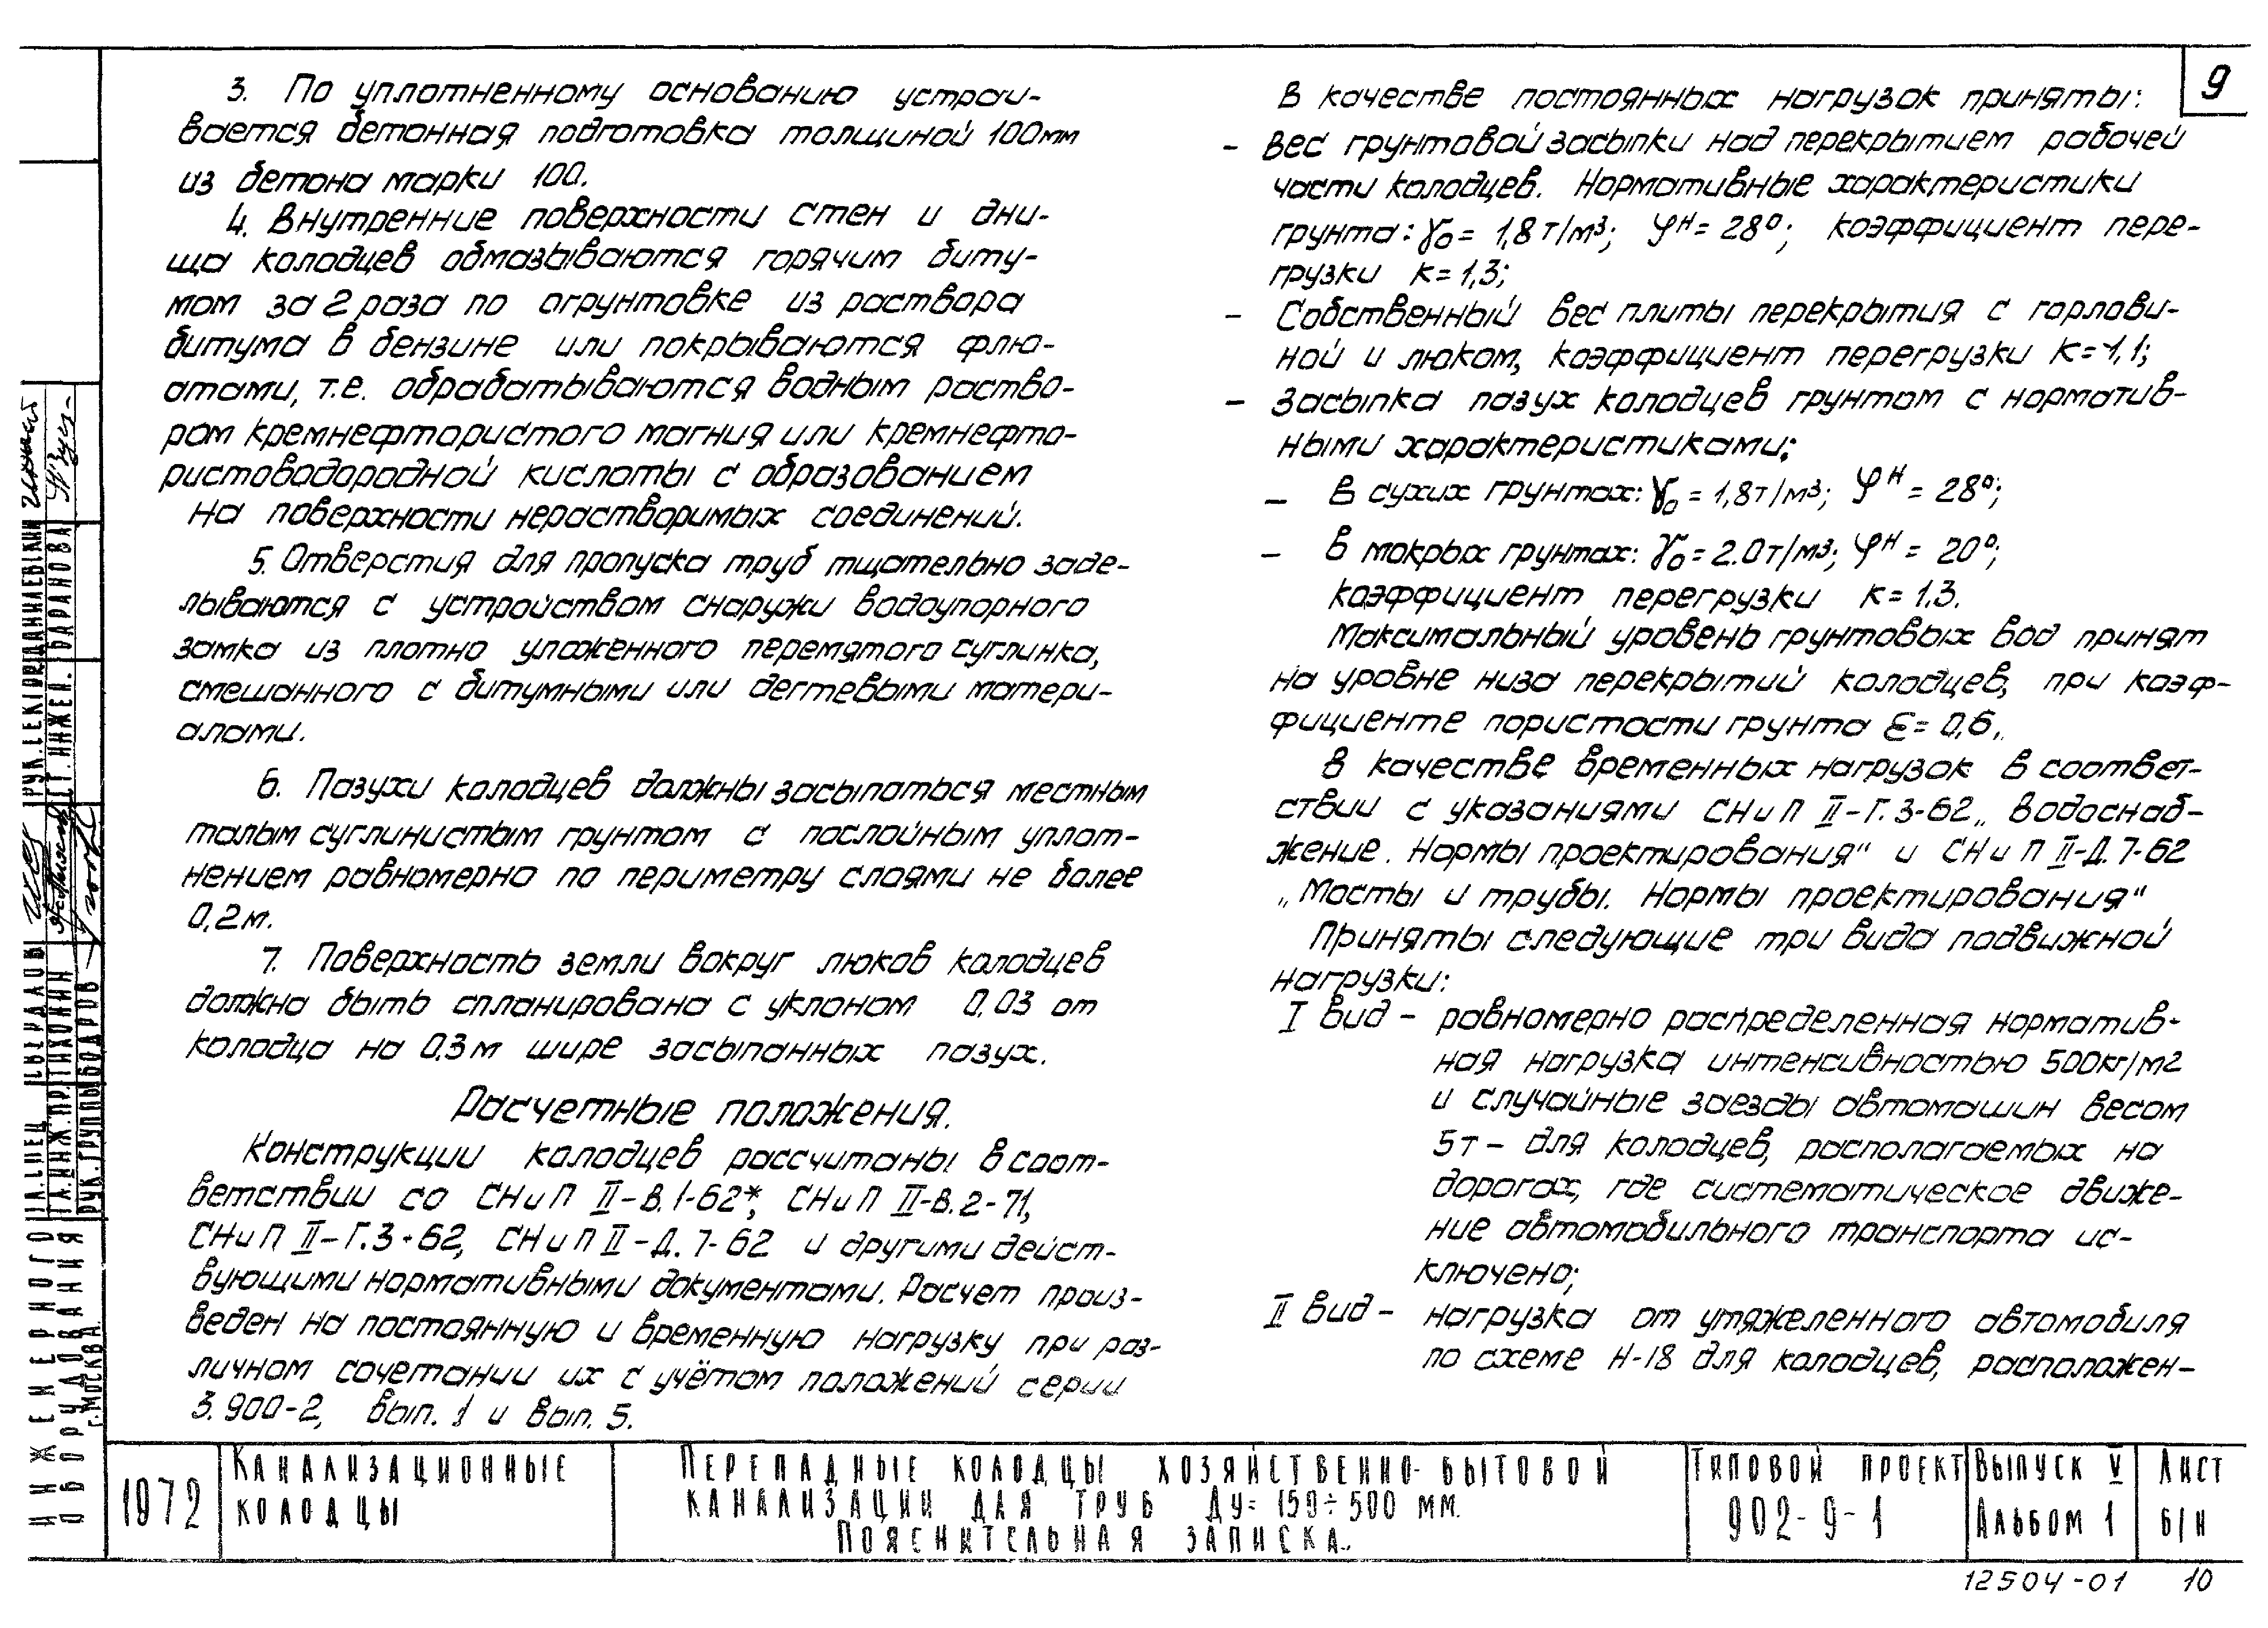 9
3. По уплотненному основанию устраи-
вается бетонная подготовка толщиной 100мм
из бетона марки 100.
4. Внутренние поверхности стен и дни-
ща колодцев обмазываются горячим биту-
мом за 2 раза по огрунтовке из раствора
битума в бензине или покрываются флю-
атами, т.е. обрабатываются водным раство-
ром кремнефтористого магния или кремнефто-
ристоводородной кислоты с образованием
на поверхности нерастворимых соединений.
5. Отверстия для пропуска труб тщательно заде-
лываются с устройством снаружи водоупорного
замка из плотно уложенного перемятого суглинка,
смешанного с битумными или дегтевыми матери-
алами.
6. Пазухи колодцев должны засыпаться местным
талым суглинистым грунтом с послойным уплот-
нением равномерно по периметру слоями не более
0,2м.
7. Поверхность земли вокруг люков колодцев
должна быть спланирована с уклоном 0,03 от
колодца на 0,3м шире засыпанных пазух.
Расчетные положения.
Конструкции колодцев рассчитаны в соот-
ветствии со СНиП II-В.1-62*, СНиП II-В.2-71,
СНиП II-Г.3-62, СНиП II-Д.7-62 и другими дейст-
вующими нормативными документами. Расчет произ-
веден на постоянную и временную нагрузку при раз-
личном сочетании их с учётом положений серии
3.900-2, вып. 1 и вып. 5.
В качестве постоянных нагрузок приняты:
- Вес грунтовой засыпки над перекрытием рабочей
части колодцев. Нормативные характеристики
грунта: γ₀ = 1,8т/м³; φᴴ = 28°; коэффициент пере-
грузки к = 1,3;
- Собственный вес плиты перекрытия с горлови-
ной и люком, коэффициент перегрузки К = 1,1;
- Засыпка пазух колодцев грунтом с норматив-
ными характеристиками:
- в сухих грунтах: γ₀ = 1,8т/м³; φᴴ = 28°;
- в мокрых грунтах: γ₀ = 2.0т/м³; φᴴ = 20°;
коэффициент перегрузки к = 1.3.
Максимальный уровень грунтовых вод принят
на уровне низа перекрытий колодцев, при коэф-
фициенте пористости грунта ε = 0,6.
В качестве временных нагрузок в соответ-
ствии с указаниями СНиП II-Г.3-62 „Водоснаб-
жение. Нормы проектирования" и СНиП II-Д.7-62
„Мосты и трубы. Нормы проектирования"
Приняты следующие три вида подвижной
нагрузки:
I вид - равномерно распределенная норматив-
ная нагрузка интенсивностью 500кг/м2
и случайные заезды автомашин весом
5т - для колодцев, располагаемых на
дорогах, где систематическое движе-
ние автомобильного транспорта ис-
ключено;
II вид - нагрузка от утяжеленного автомобиля
по схеме Н-18 для колодцев, расположен-
ИНЖЕНЕРНОГО
ОБОРУДОВАНИЯ
г. Москва.
ГЛ.СПЕЦ ЦВЕРДЛОВ
ГЛ.ИНЖ.ПР. ТИХОНИН
РУК.ГРУППЫ БОДРОВ
РУК.СЕКТОРА ДАНИЛЕВКИН
СТ.ИНЖЕН. БАРАНОВА
1972
Канализационные
колодцы
Перепадные колодцы хозяйственно-бытовой
канализации для труб Ду=150÷500 мм.
Пояснительная записка.
Типовой проект
902-9-1
Выпуск V
Альбом 1
Лист
б/н
12504-01 10